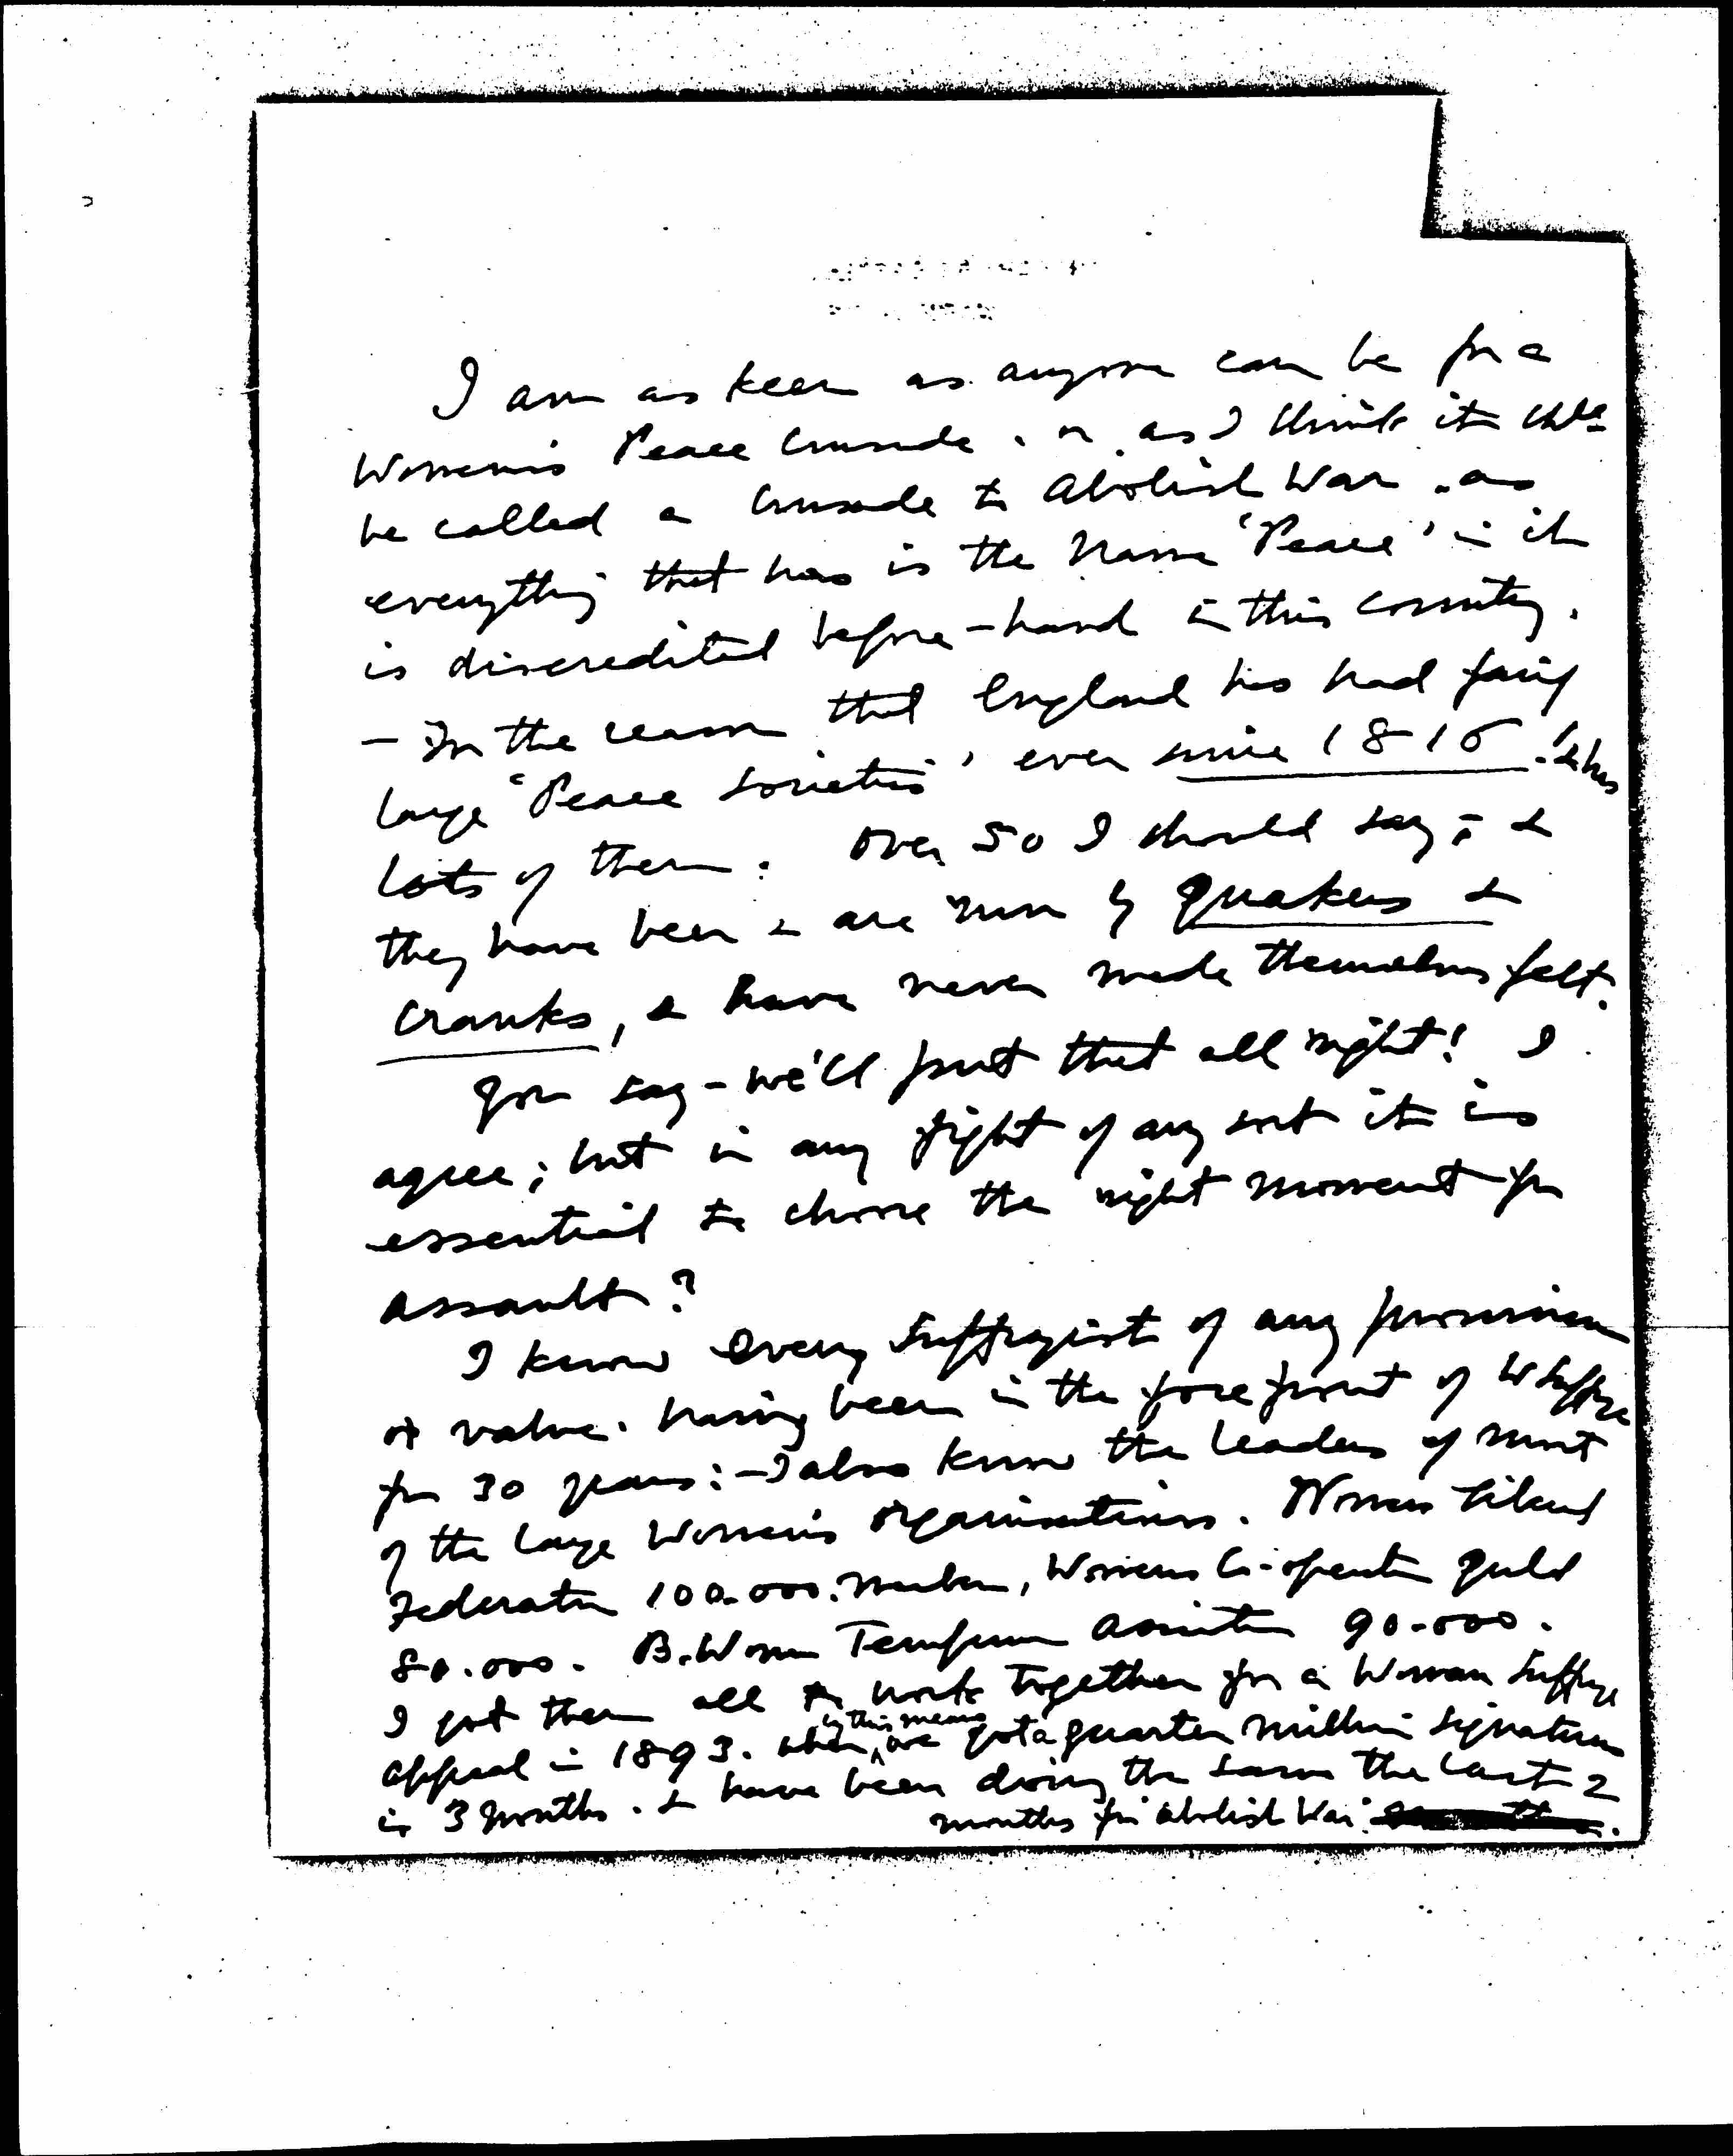 I am as keen as anyone can be for a
Women's Peace Crusade. or as I think it shld
be called a Crusade to Abolish War. as
everything that has is the Name 'Peace' in it
is discredited before-hand in this country.
- For the reason that England has had fairly
large "Peace Societies' ever since 1816. & has
lots of them: over 50 I should say; &
they have been & are run by Quakers &
Cranks, & have never made themselves felt.
You say - we'll put that all right! I
agree; but in any fight of any sort it is
essential to choose the right moment for
assault?
I know every Suffragist of any prominence
or value. having been in the forefront of W Suffrage
for 30 years: - I also know the Leaders of most
of the large Women's organisations. Women Liberal
Federation 100.000. Members, Womens Co-operative Guild
80.000. B. Women Temperance Association 90.000.
I got them all to work together for a Woman Suffrage
appeal in 1893. when by this means we got a quarter million Signatures
in 3 months. & have been doing the same the last 2
months for 'Abolish War'.